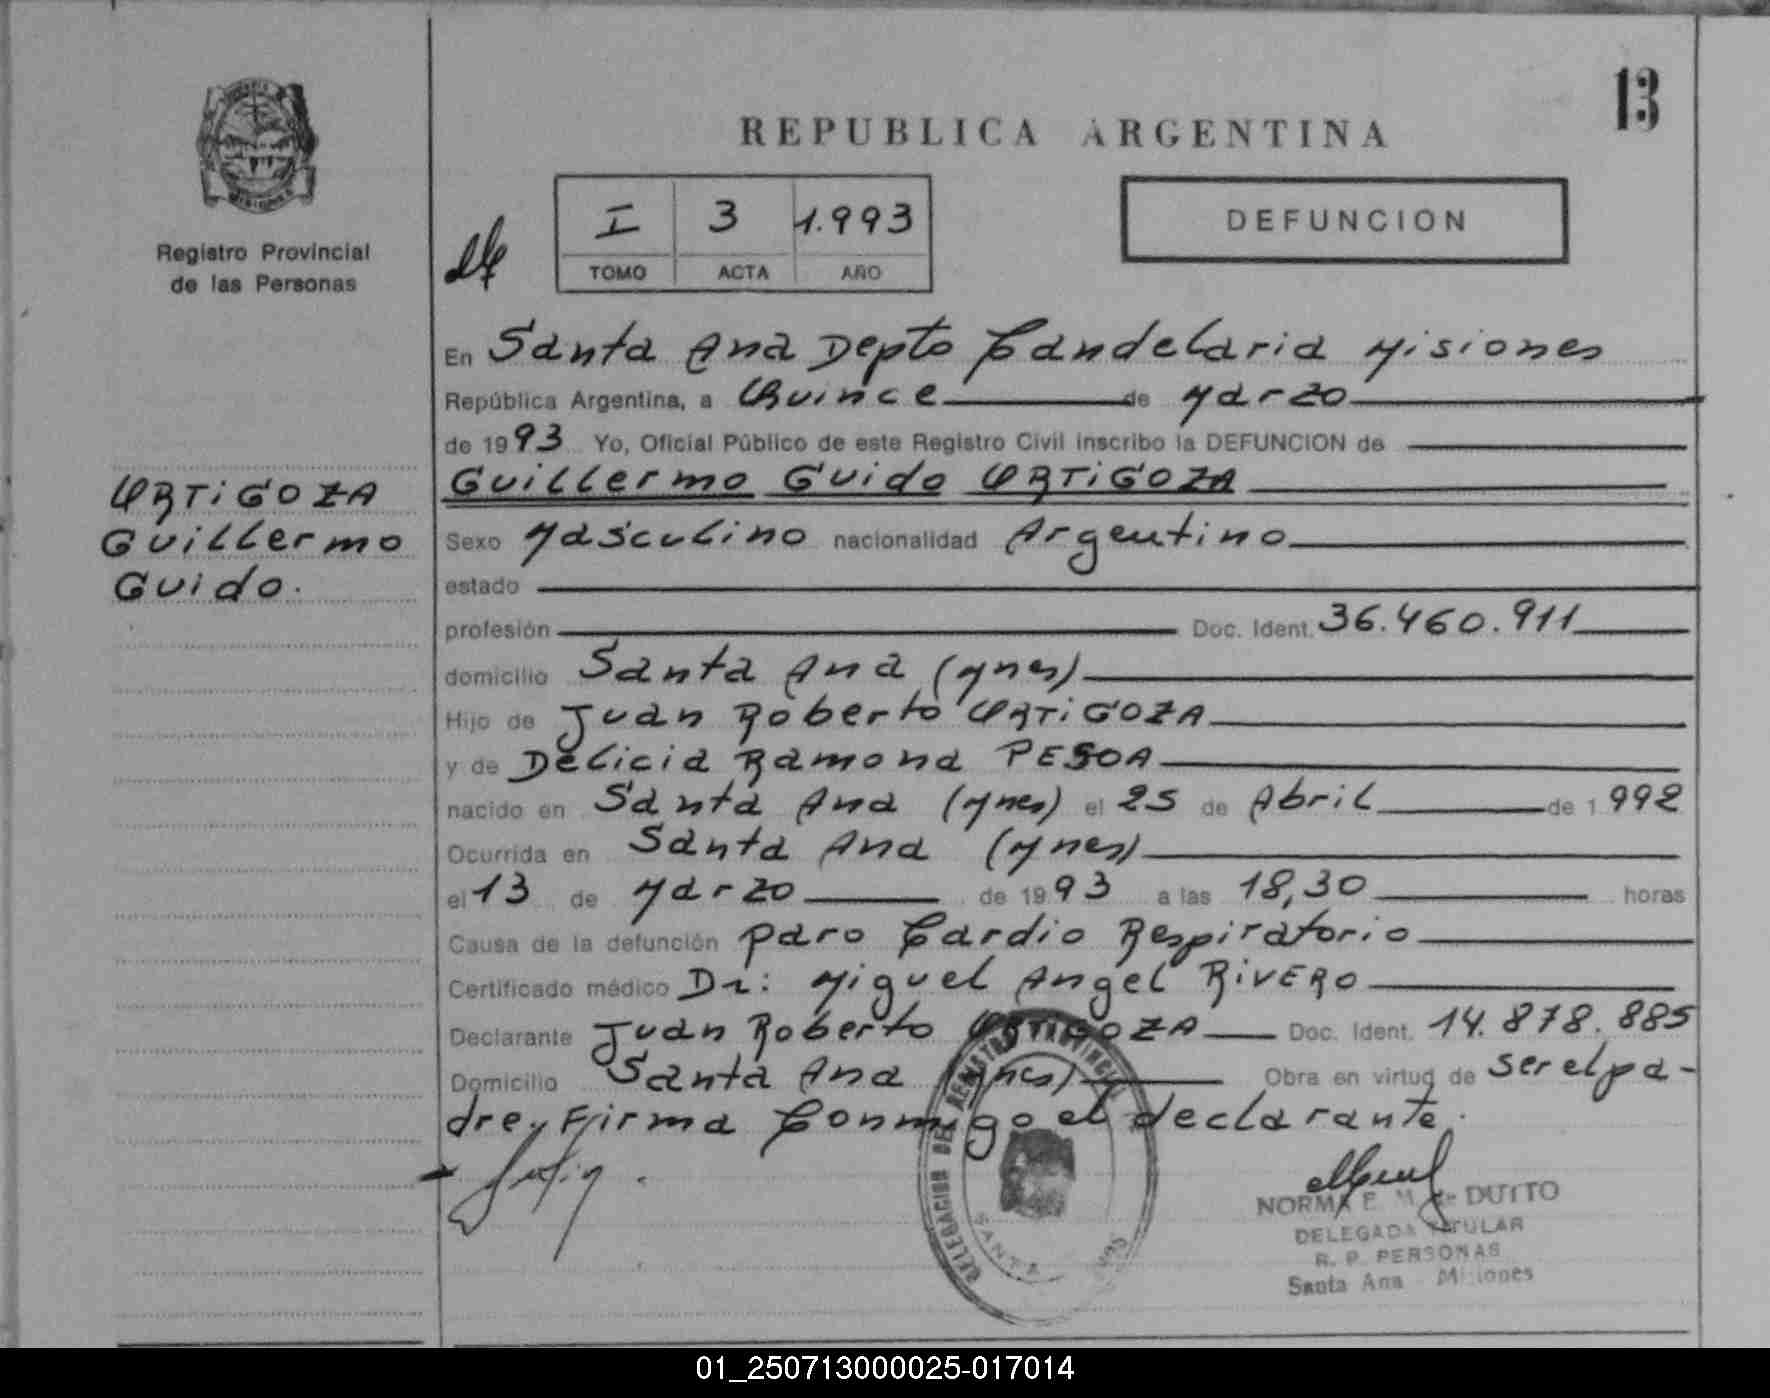 13
REPUBLICA ARGENTINA
I 3 1.993
TOMO ACTA AÑO
DEFUNCION
Registro Provincial
de las Personas
En Santa Ana Depto Candelaria Misiones
República Argentina, a Quince de Marzo
de 1993 Yo, Oficial Público de este Registro Civil inscribo la DEFUNCION de
Guillermo Guido ORTIGOZA
ORTIGOZA
Guillermo
Guido.
Sexo Masculino nacionalidad Argentino
estado
profesión Doc. Ident. 36.460.911
domicilio Santa Ana (Mnes)
Hijo de Juan Roberto ORTIGOZA
y de Delicia Ramona PESOA
nacido en Santa Ana (Mnes) el 25 de Abril de 1992
Ocurrida en Santa Ana (Mnes)
el 13 de Marzo de 1993 a las 18,30 horas
Causa de la defunción Paro Cardio Respiratorio
Certificado médico Dr: Miguel Angel RIVERO
Declarante Juan Roberto ORTIGOZA Doc. Ident. 14.878.885
Domicilio Santa Ana (Mnes) Obra en virtud de ser el pa-
dre, Firma Conmigo el declarante.
DELEGACION DEL REGISTRO PROVINCIAL
SANTA
NORMA E. M. de DUTTO
DELEGADA TITULAR
R. P. PERSONAS
Santa Ana - Misiones
01_250713000025-017014